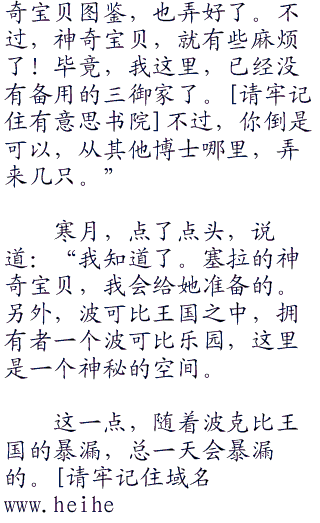 奇宝贝图鉴，也弄好了。不
过，神奇宝贝，就有些麻烦
了！毕竟，我这里，已经没
有备用的三御家了。[请牢记
住有意思书院]不过，你倒是
可以，从其他博士哪里，弄
来几只。”
寒月，点了点头，说
道：“我知道了。塞拉的神
奇宝贝，我会给她准备的。
另外，波可比王国之中，拥
有者一个波可比乐园，这里
是一个神秘的空间。
这一点，随着波克比王
国的暴漏，总一天会暴漏
的。[请牢记住域名
www.heihe